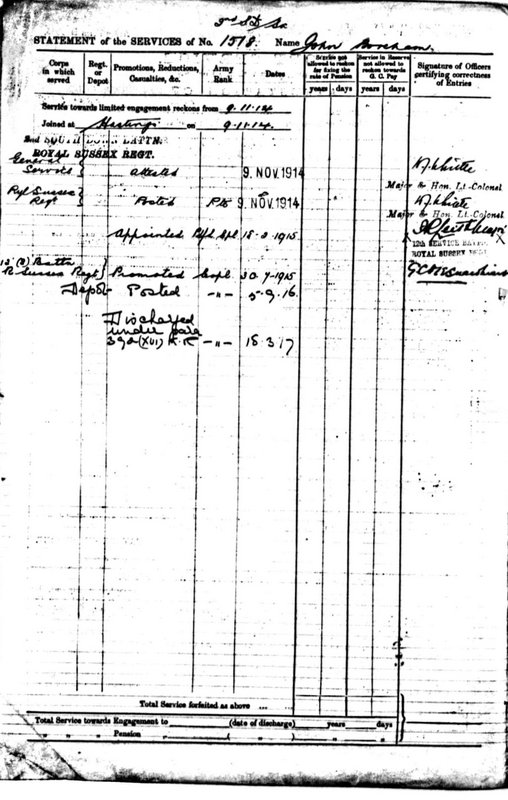 STATEMENT of the SERVICES of No. 1518. Name John
Corps in which served
Regt. or Depot
Promotions, Reductions, Casualties, &c.
Army Rank
Dates
Service not allowed to reckon for fixing the rate of Pension
Service in Reserve not allowed to reckon towards G. C. Pay
Signature of Officers certifying correctness of Entries
years days years days
Service towards limited engagement reckons from 9.11.14
Joined at Hastings on 9.11.14.
2nd SOUTH DOWN BATTN.
ROYAL SUSSEX REGT.
General Service Attested 9 NOV. 1914
Major & Hon. Lt-Colonel
Rl Sussex Regt Posted Pte 9 NOV. 1914
Major & Hon. Lt-Colonel
Appointed 1915
12th SERVICE BATTN.
ROYAL SUSSEX REGT.
Battn
R Sussex Regt Promoted Corpl 30.7.1915
Depot Posted -"- 5.9.16.
Discharged
under para
392(XVI) K.R -"- 18.3.17
Total Service forfeited as above ...
Total Service towards Engagement to (date of discharge) years days
" " Pension " ( " " ) " "